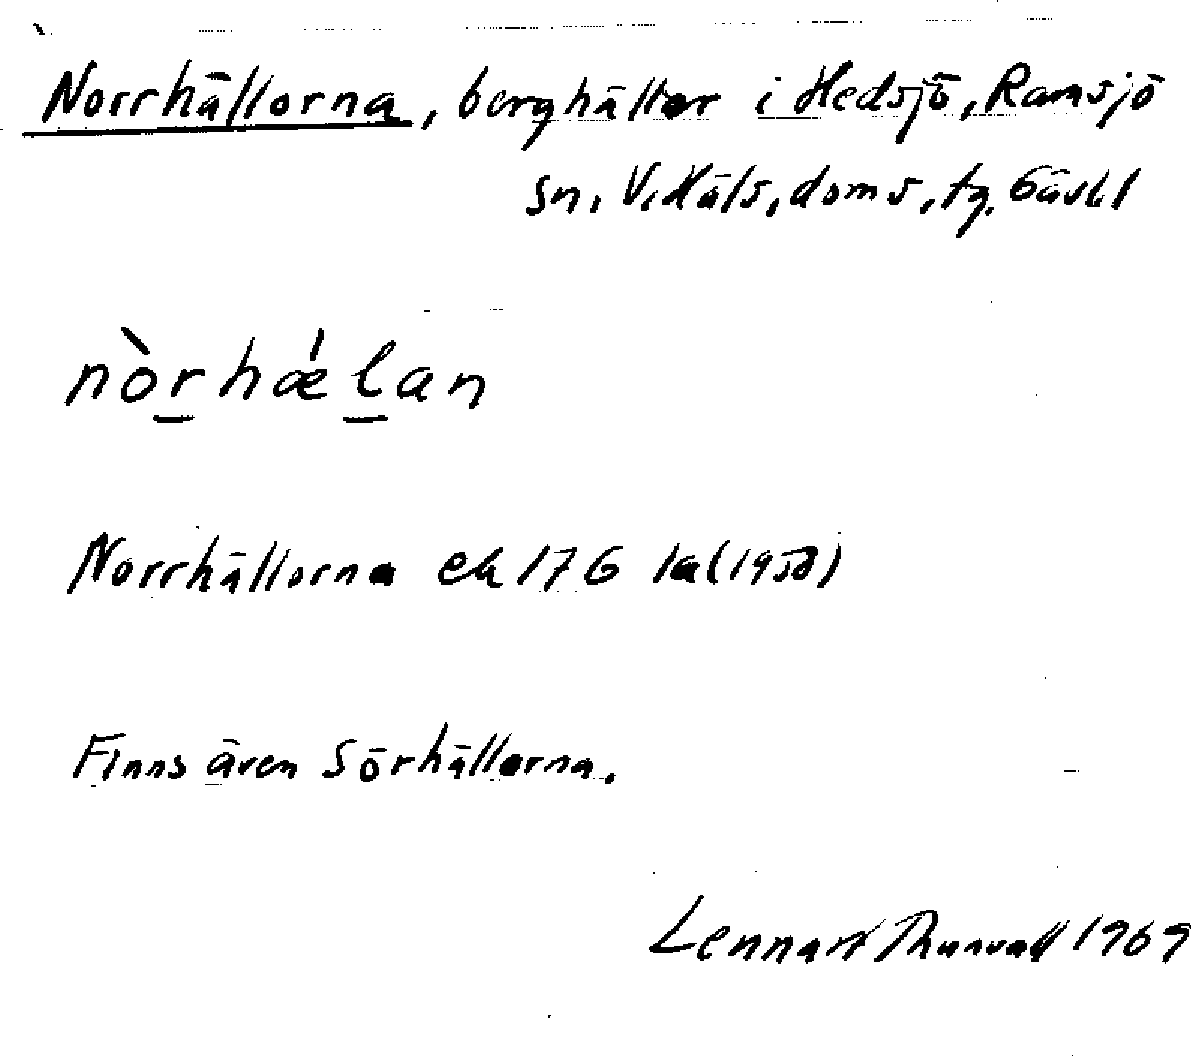 Norrhällorna, berghällar i Hedsjö, Ramsjö
sn. V. Häls. doms. tg. Gävl l
nòrhǽlan
Norrhällorna ek 17G 1a (1958)
Finns även Sörhällorna.
Lennart Thunvall 1969